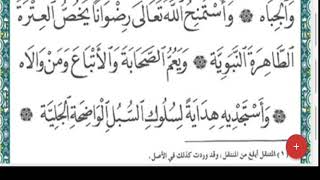 وَالْجِبَاهِ ۞ وَأَسْتَمْنِحُ اللَّهَ تَعَالَى رِضْوَانًا يَخُصُّ الْعِتْرَةَ
الطَّاهِرَةَ النَّبَوِيَّةَ ۞ وَيَعُمُّ الصَّحَابَةَ وَالْأَتْبَاعَ وَمَنْ وَالَاهُ
۞ وَأَسْتَجْدِيهِ هِدَايَةً لِسُلُوكِ السُّبُلِ الْوَاضِحَةِ الْجَلِيَّةِ
(١) المتنقل أبلغ من المنتقل، وقد وردت كذلك في الأصل.